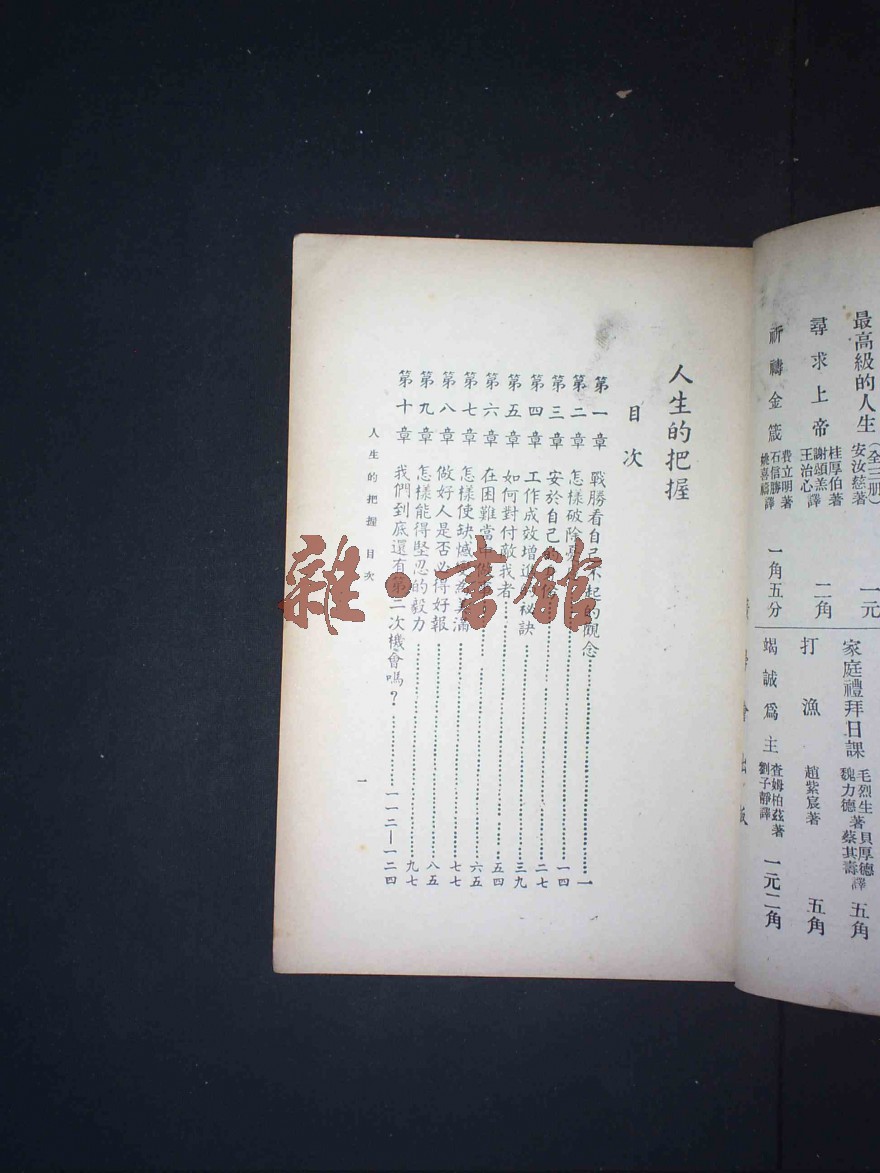 最高級的人生(全三册)安汝慈著 一元
尋求上帝 桂厚伯著 謝頌羔 王治心譯 二角
祈禱金箴 費立明著 石信勝 姚喜 譯 一角五分
家庭禮拜日課 毛烈生 貝厚德 魏力德著 蔡其壽譯 五角
打漁 趙紫宸著 五角
竭誠爲主 查姆柏茲著 劉子靜譯 一元二角
人生的把握
目次
第一章 戰勝看自己不起的觀念 一
第二章 怎樣破除 一四
第三章 安於自己的 二七
第四章 工作成效增進 秘訣 三九
第五章 如何對付敵我者 五四
第六章 在困難當中 六五
第七章 怎樣使缺憾 美滿 七七
第八章 做好人是否必得好報 八五
第九章 怎樣能得堅忍的毅力 九七
第十章 我們到底還有第二次機會嗎? 一一二—一二四
人生的把握 目次
一
雜·書館